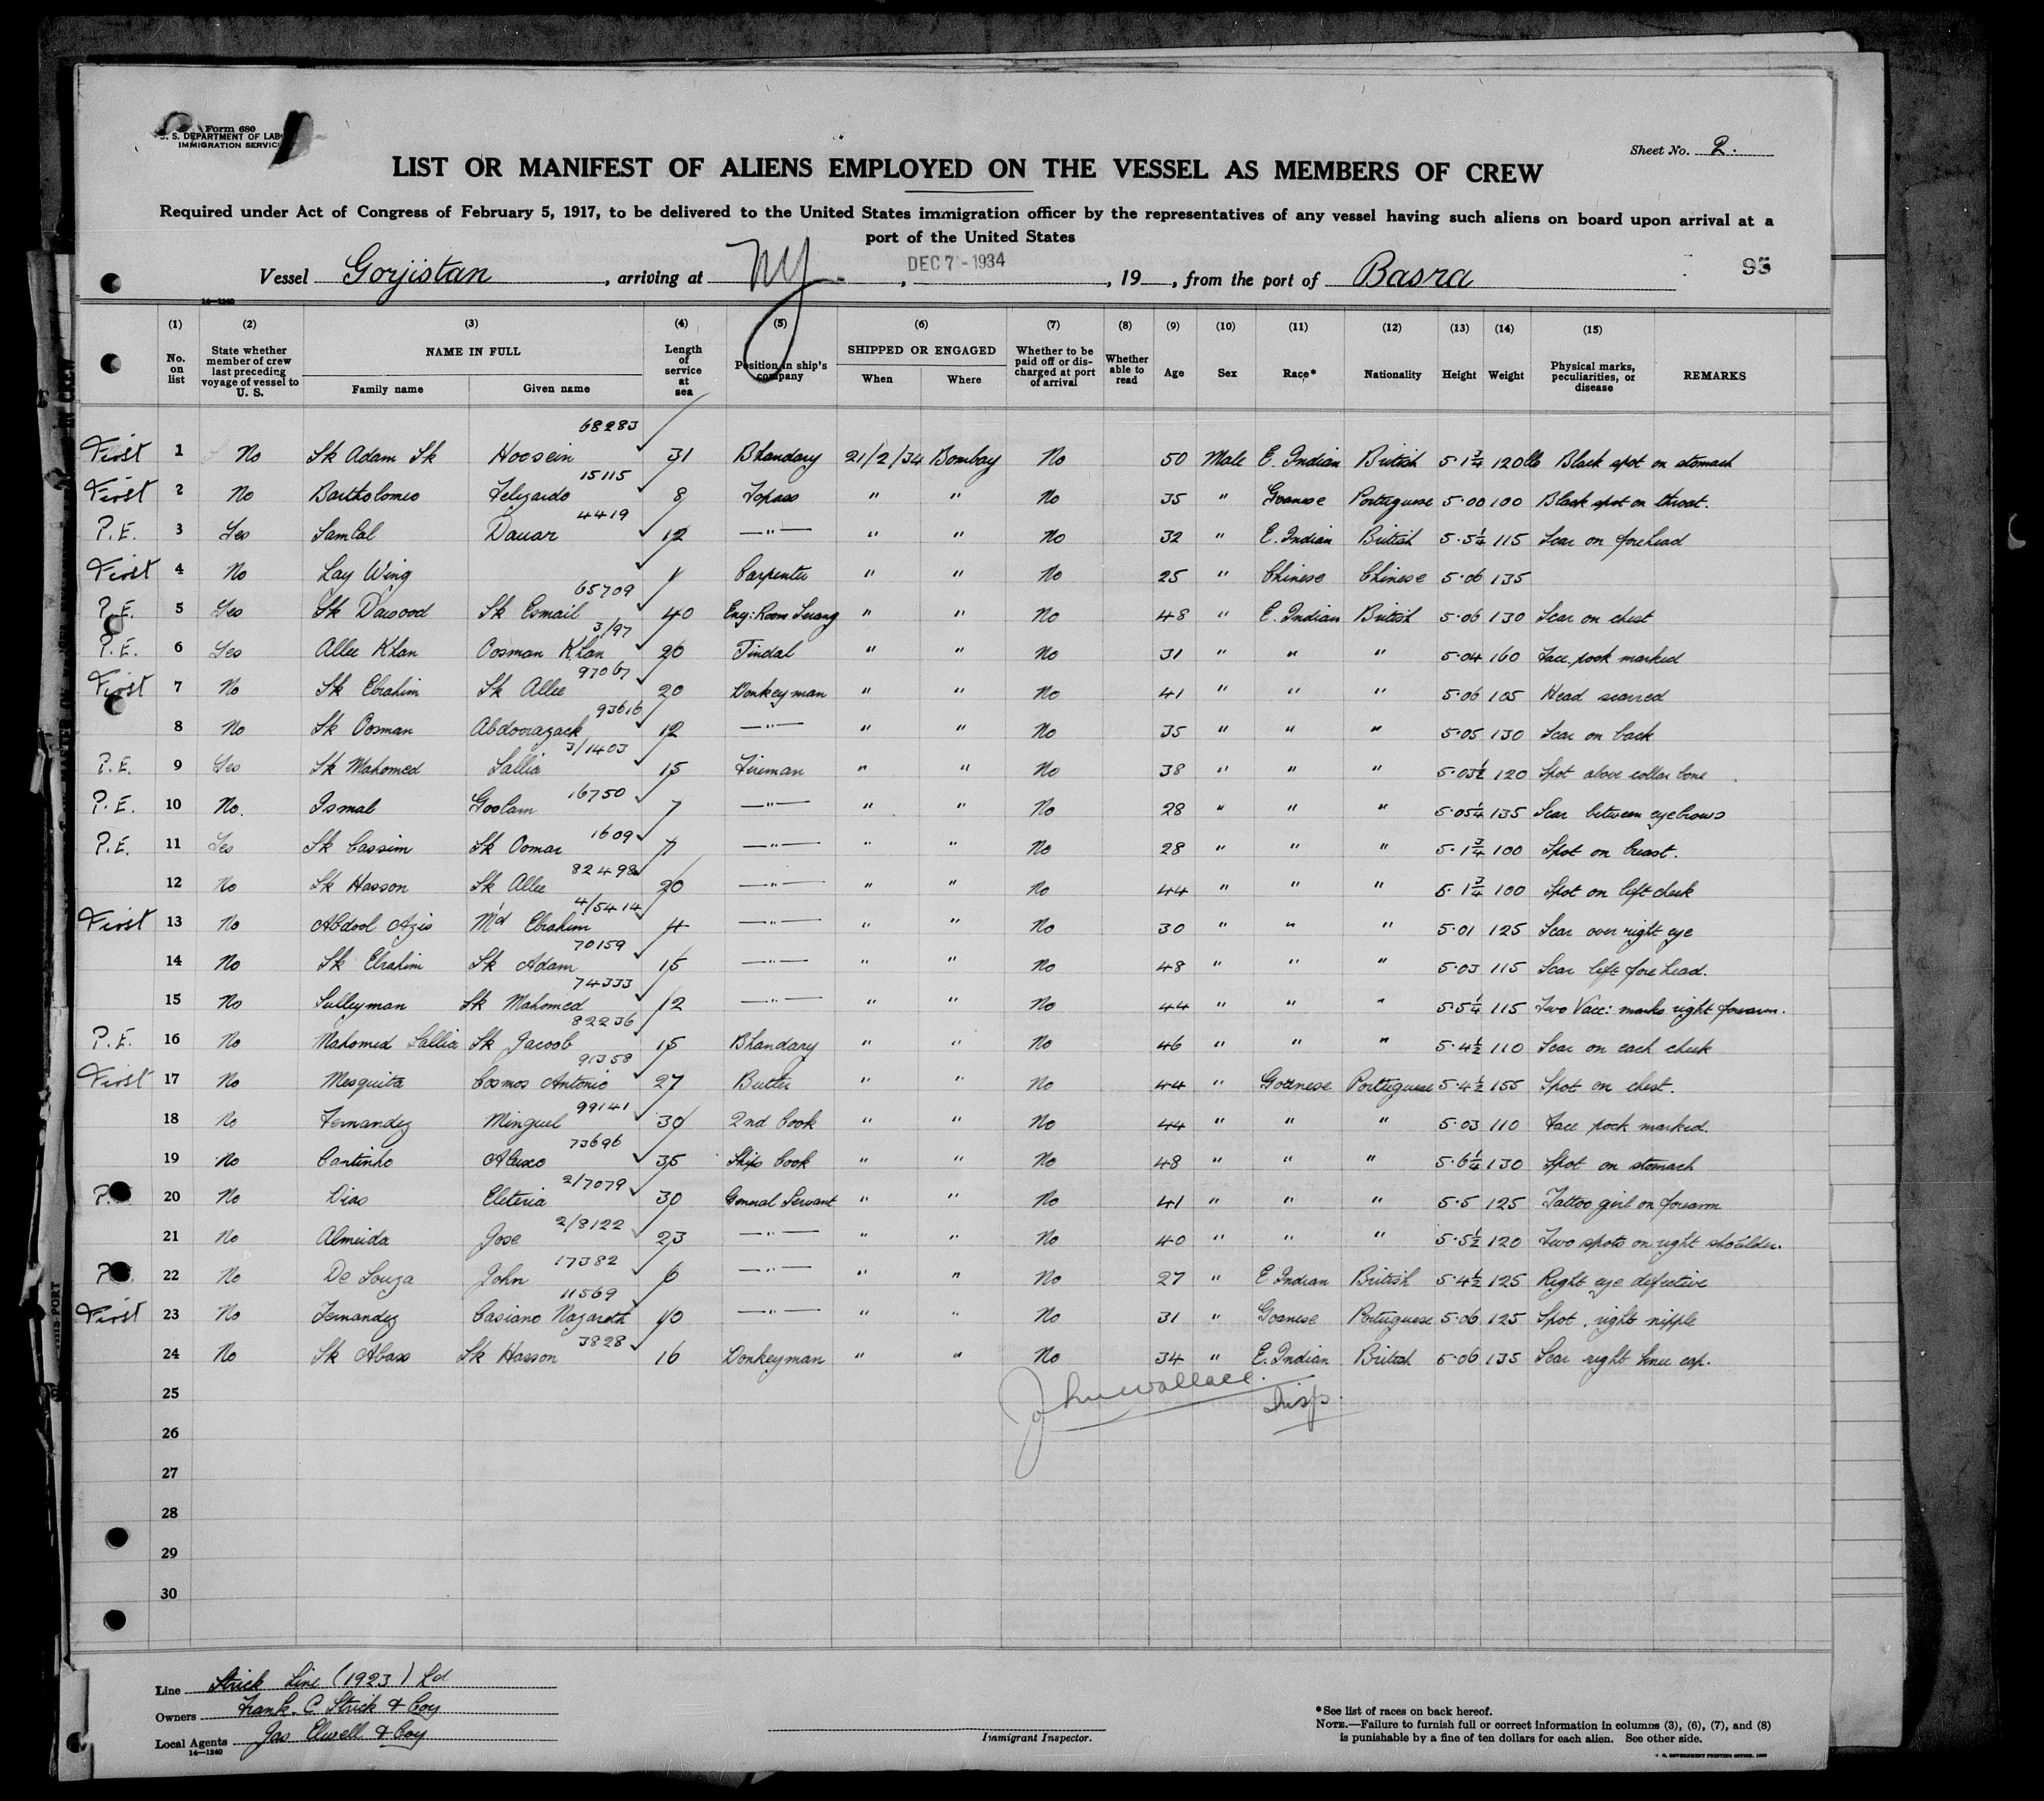 Form 680
U. S. DEPARTMENT OF LABOR
IMMIGRATION SERVICE
Sheet No. 2.
LIST OR MANIFEST OF ALIENS EMPLOYED ON THE VESSEL AS MEMBERS OF CREW
Required under Act of Congress of February 5, 1917, to be delivered to the United States immigration officer by the representatives of any vessel having such aliens on board upon arrival at a
port of the United States
Vessel Gorjistan, arriving at NY., DEC 7 - 1934, 19__, from the port of Basra 95
14—1240
(1) (2) (3) (4) (5) (6) (7) (8) (9) (10) (11) (12) (13) (14) (15)
No. on list | State whether member of crew last preceding voyage of vessel to U. S. | NAME IN FULL Family name Given name | Length of service at sea | Position in ship's company | SHIPPED OR ENGAGED When Where | Whether to be paid off or discharged at port of arrival | Whether able to read | Age | Sex | Race* | Nationality | Height | Weight | Physical marks, peculiarities, or disease | REMARKS
68283
First 1 No Sk Adam Sk Hoosein 31 Bhandary 21/2/34 Bombay No 50 Male E. Indian British 5·1¾ 120lb Black spot on stomach
15115
First 2 No Bartholomeo Felizardo 8 Topass " " No 35 " Goanese Portuguese 5·00 100 Black spot on throat.
4419
P.E. 3 Yes Samlal Dauar 12 —"— " " No 32 " E. Indian British 5·5¼ 115 Scar on forehead
First 4 No Lay Wing 1 Carpenter " " No 25 " Chinese Chinese 5·06 135
65709
P.E. 5 Yes Sk Dawood Sk Esmail 40 Eng: Room Serang " " No 48 " E. Indian British 5·06 130 Scar on chest
3/97
P.E. 6 Yes Allee Khan Oosman Khan 20 Tindal " " No 31 " " " 5·04 160 Face pock marked
97067
First 7 No Sk Ebrahim Sk Allee 20 Donkeyman " " No 41 " " " 5·06 105 Head scarred
93616
8 No Sk Oosman Abdoorazack 12 —"— " " No 35 " " " 5·05 130 Scar on back
3/1403
P.E. 9 Yes Sk Mahomed Sallia 15 Fireman " " No 38 " " " 5·03½ 120 Spot above collar bone
16750
P.E. 10 No. Ismal Goolam 7 —"— " " No 28 " " " 5·05¼ 135 Scar between eyebrows
1609
P.E. 11 Yes Sk Cassim Sk Oomar 7 —"— " " No 28 " " " 5·1¾ 100 Spot on breast.
82498
12 No Sk Hasson Sk Allee 20 —"— " " No 44 " " " 5·1¾ 100 Spot on left cheek
4/5414
First 13 No Abdool Azis Md Ebrahim 4 —"— " " No 30 " " " 5·01 125 Scar over right eye
70159
14 No Sk Ebrahim Sk Adam 15 —"— " " No 48 " " " 5·03 115 Scar left fore head.
74333
15 No Sulleyman Sk Mahomed 12 —"— " " No 44 " " " 5·5¼ 115 Two Vacc: marks right forearm.
82236
P.E. 16 No Mahomed Sallia Sk Jacoob 15 Bhandary " " No 46 " " " 5·4½ 110 Scar on each cheek
91358
First 17 No Mesquita Cosmos Antonio 27 Butler " " No 44 " Goanese Portuguese 5·4½ 155 Spot on chest.
99141
18 No Fernandez Minguel 30 2nd Cook " " No 44 " " " 5·03 110 Face pock marked.
73696
19 No Cantinho Aleixo 35 Ships Cook " " No 48 " " " 5·6¼ 130 Spot on stomach
2/7079
P. 20 No Dias Eleteria 30 General Servant " " No 41 " " " 5·5 125 Tattoo girl on forearm
2/8122
21 No Almeida Jose 23 —"— " " No 40 " " " 5·5½ 120 Two spots on right shoulder.
17382
P. 22 No De Souza John 6 —"— " " No 27 " E Indian British 5·4½ 125 Right eye defective
11569
First 23 No Fernandez Casiano Nazareth 10 —"— " " No 31 " Goanese Portuguese 5·06 125 Spot, right nipple
3828
24 No Sk Abass Sk Hasson 16 Donkeyman " " No 34 " E. Indian British 5·06 135 Scar right knee cap.
25 John Wallace.
Insp.
26
27
28
29
30
Line Strick Line (1923) Ld
Owners Frank. C Strick & Coy
Local Agents Jas Elwell & Coy
14—1240
Immigrant Inspector.
*See list of races on back hereof.
NOTE.—Failure to furnish full or correct information in columns (3), (6), (7), and (8)
is punishable by a fine of ten dollars for each alien. See other side.